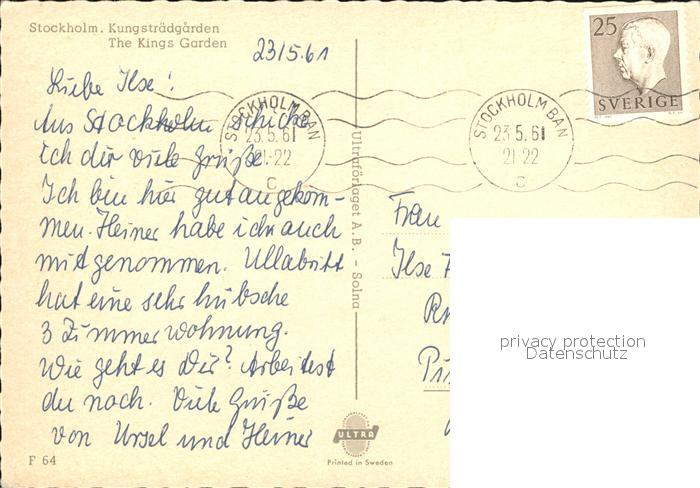 Stockholm. Kungsträdgården
The Kings Garden
23/5.61
Liebe Ilse!
Aus Stockholm schicke
ich dir viele Grüße.
Ich bin hier gut angekom-
men. Heiner habe ich auch
mitgenommen. Ullabritt
hat eine sehr hübsche
3 Zimmerwohnung.
Wie geht es Dir? Arbeitest
du noch. Viele Grüße
von Ursel und Heiner
F 64
STOCKHOLM BAN
23.5.61
21-22
C
STOCKHOLM BAN
23.5.61
21-22
C
25
SVERIGE
Ultraförlaget A.B. - Solna
Frau
Ilse
privacy protection
Datenschutz
ULTRA
Printed in Sweden